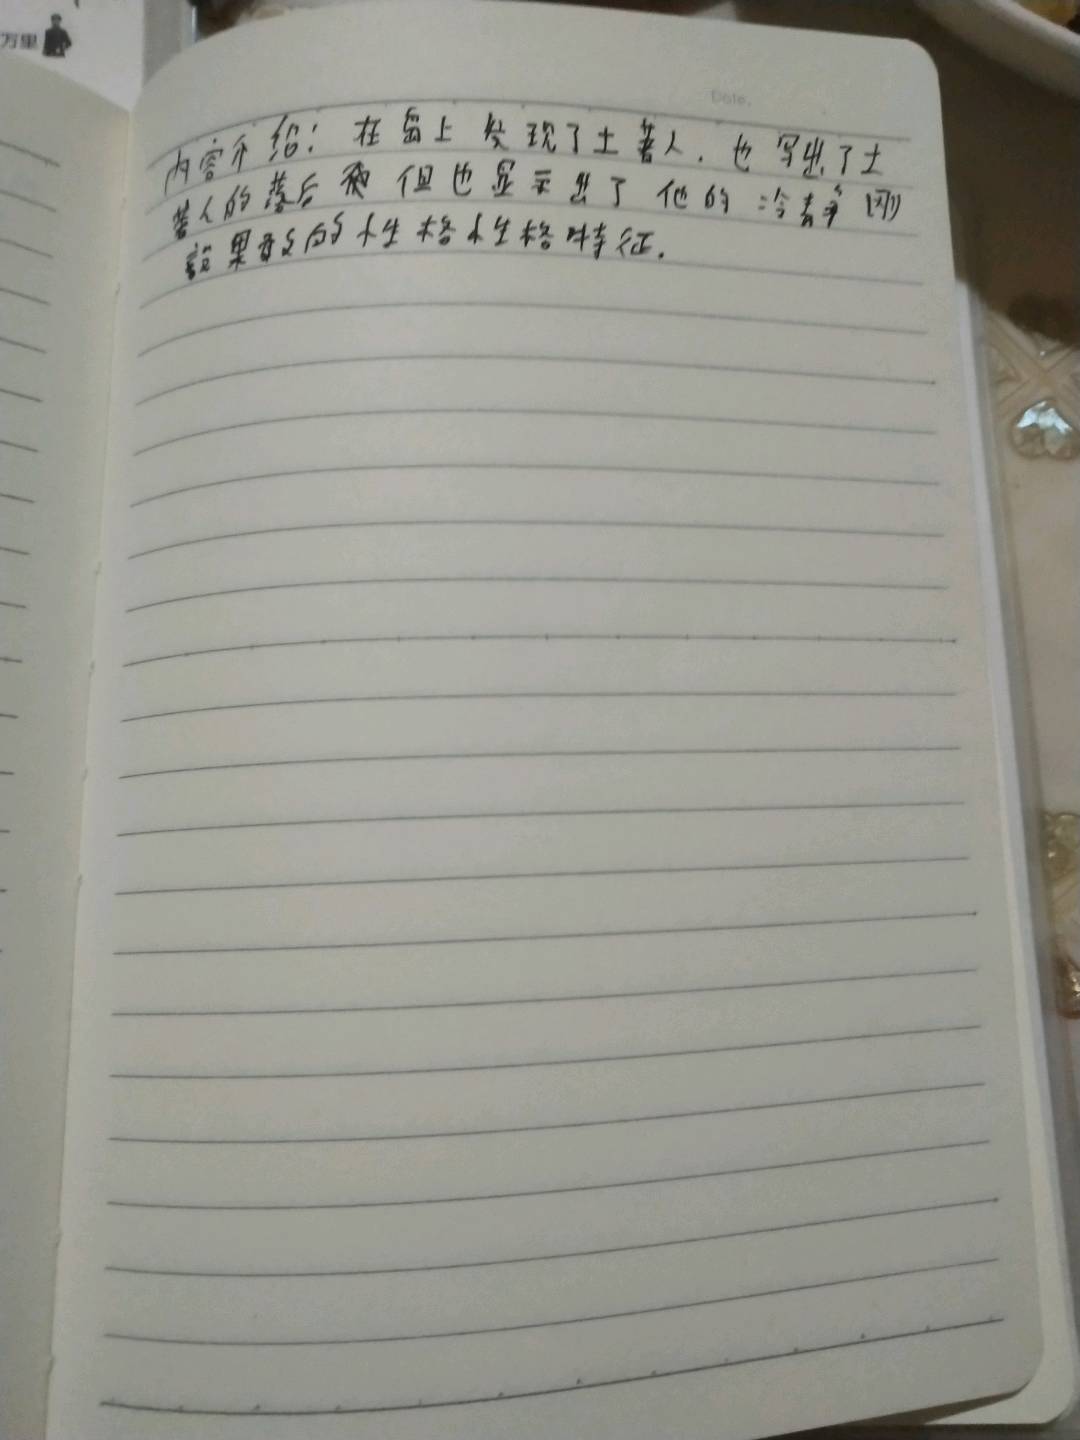 万里
Date.
内容介绍:在岛上发现了土著人.也写出了土
著人的落后 但也显示出了他的冷静刚
毅果敢的性格性格特征.